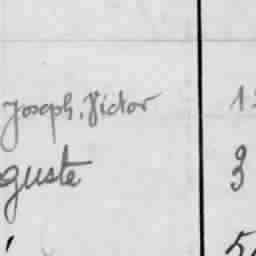 Joseph, Victor 1
guste 3
5